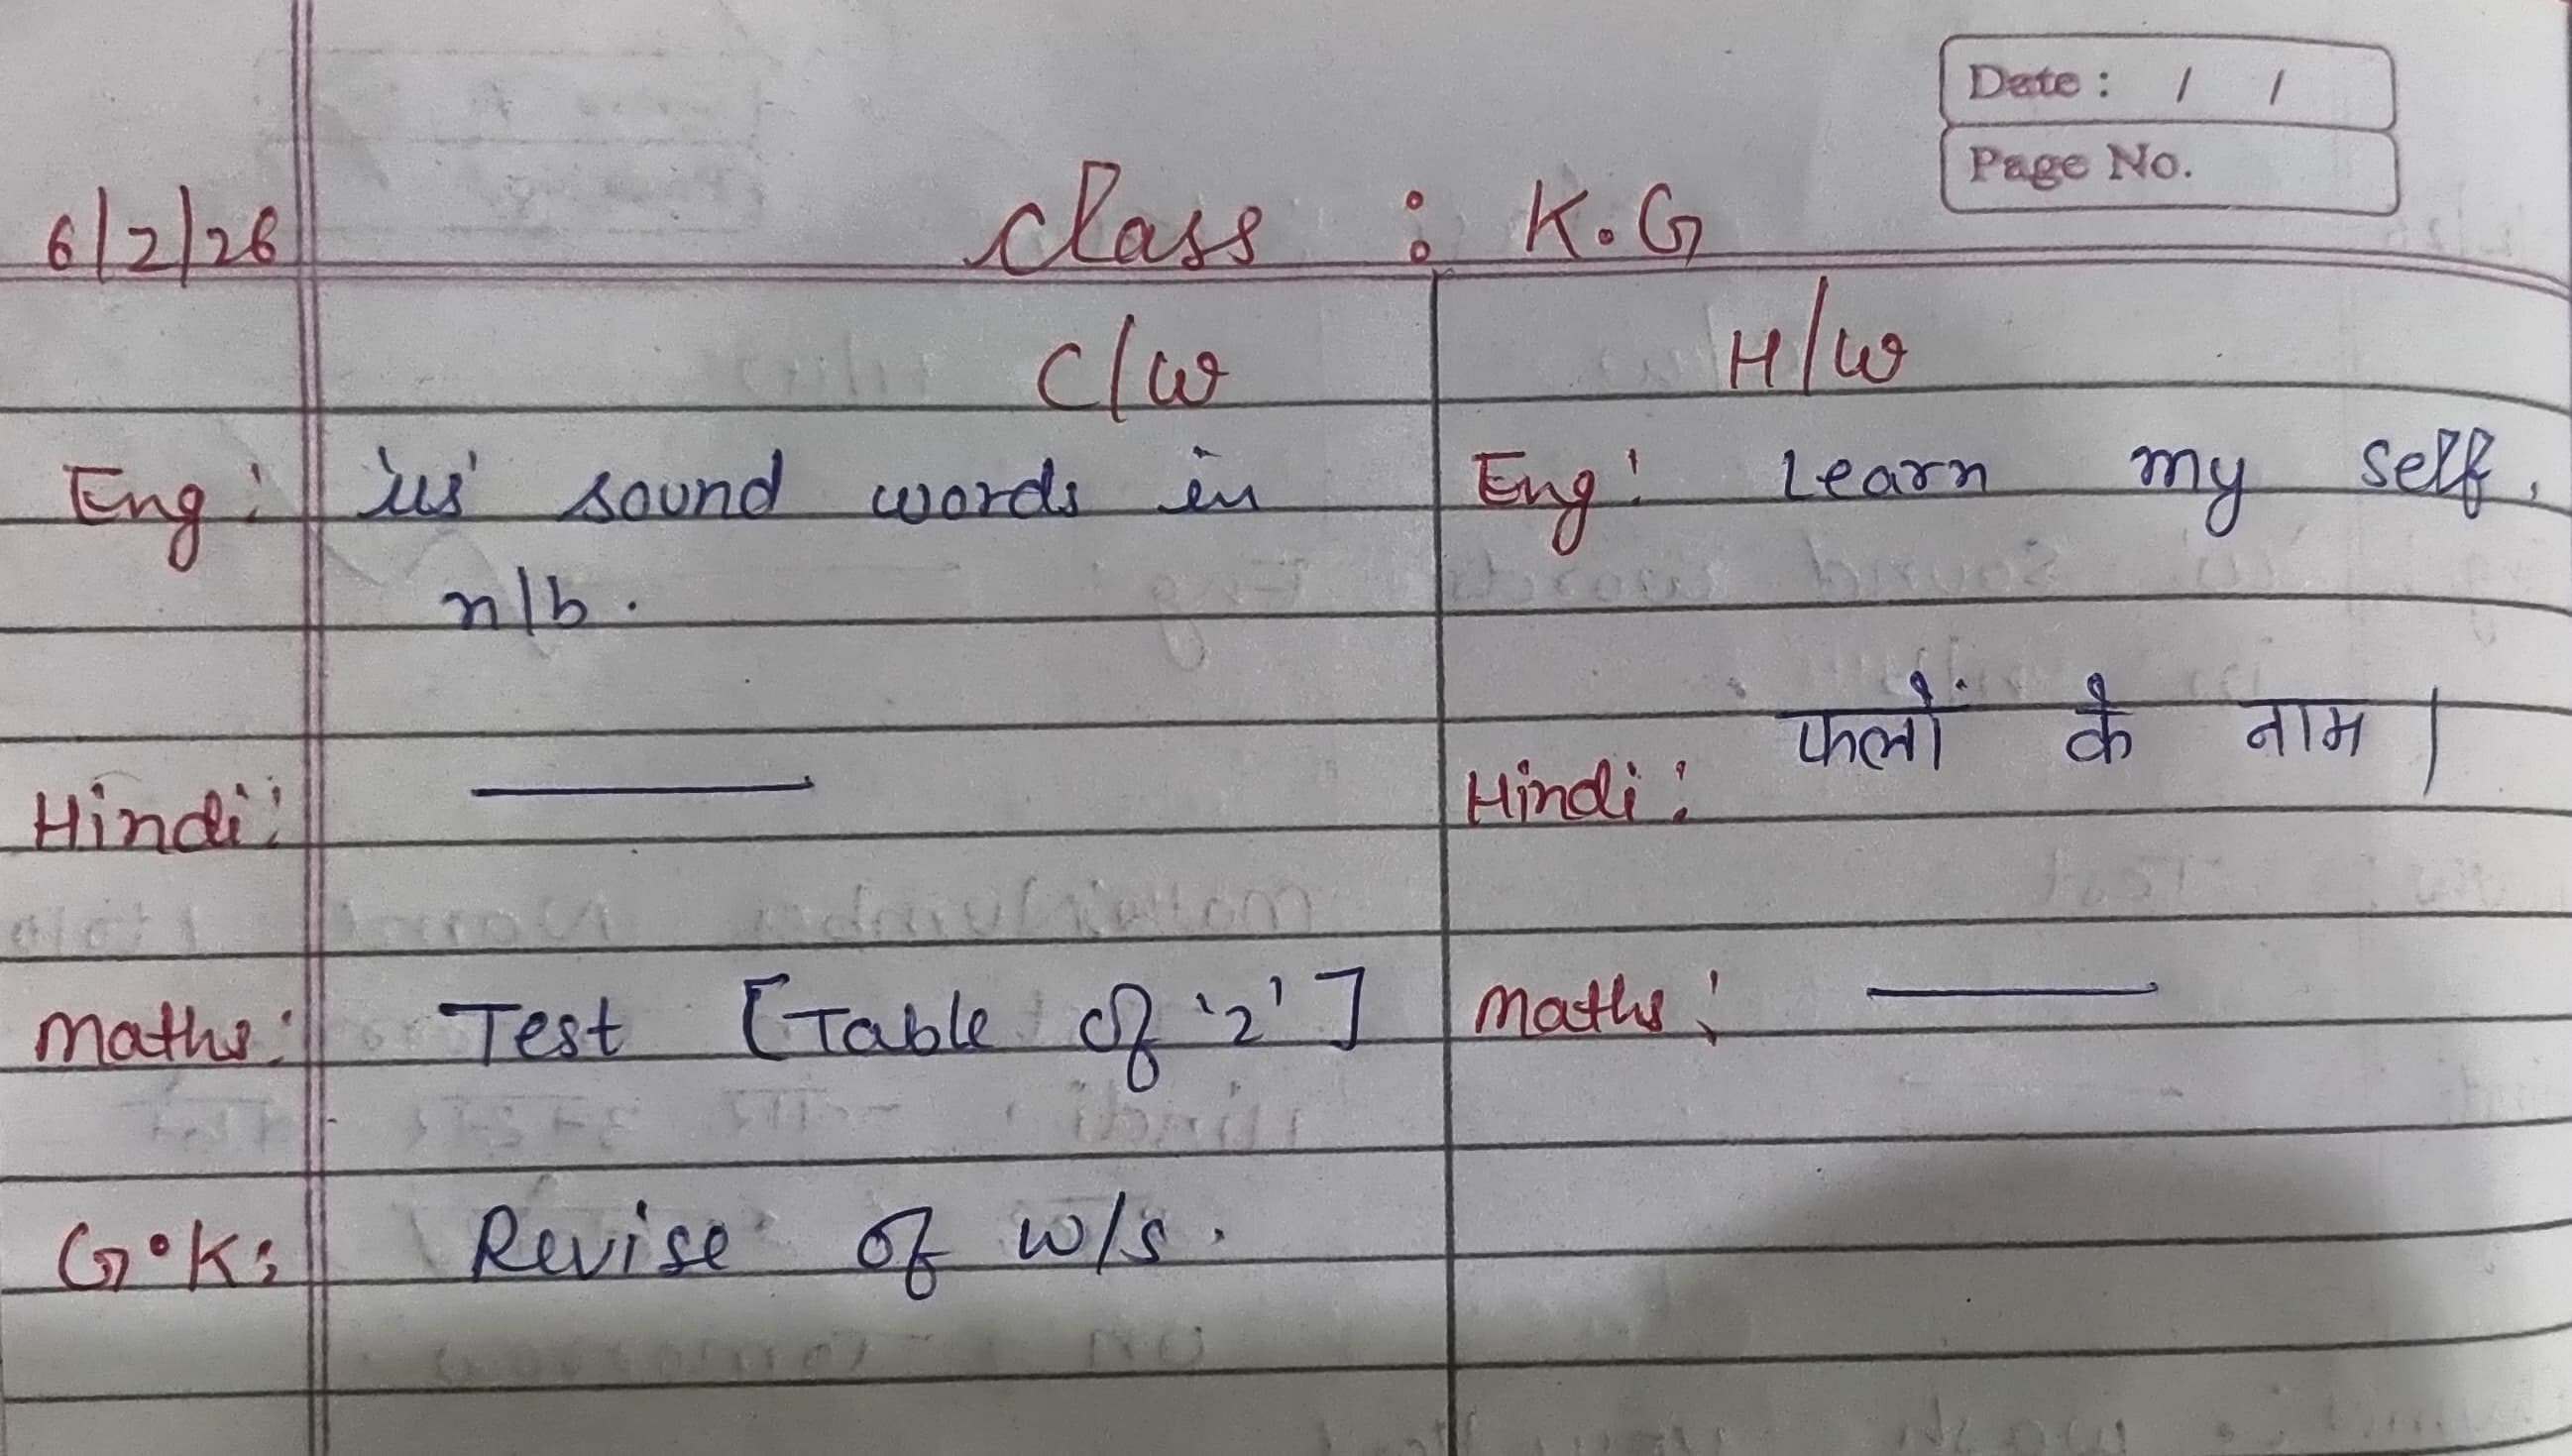 Date : / /
Page No.
6/2/26 Class : K.G
C/W H/W
Eng: 'us' sound words in
n/b.
Eng: Learn my self.
Hindi: ———
Hindi: फलों के नाम |
Maths: Test [Table of '2']
Maths: ———
G.K: Revise of w/s.